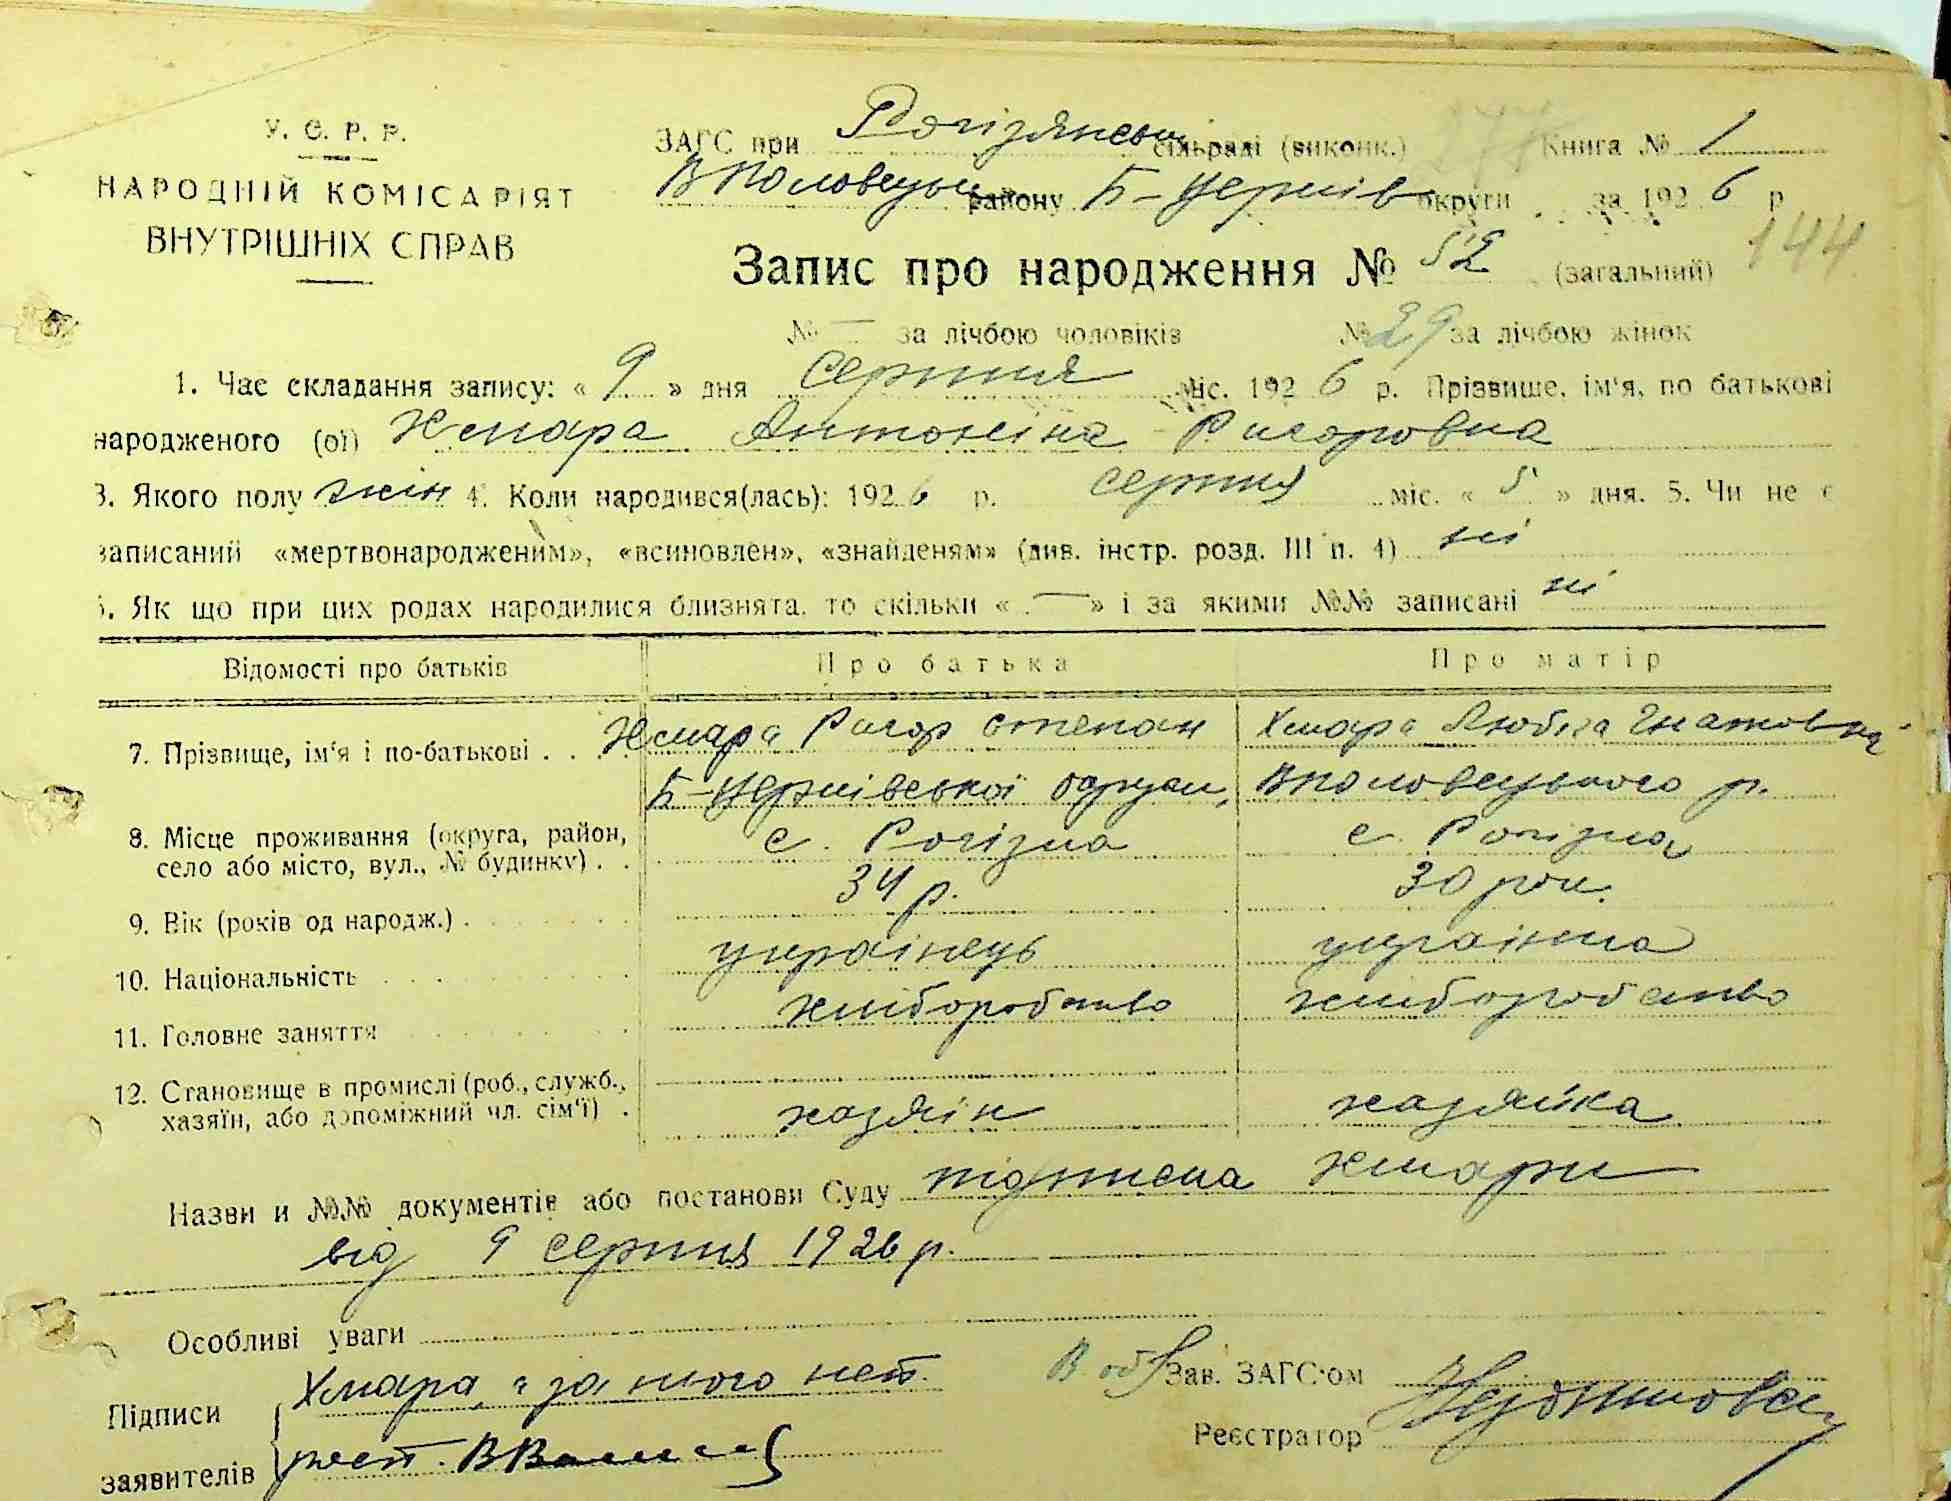 У. С. Р. Р.
НАРОДНІЙ КОМІСАРІЯТ
ВНУТРІШНІХ СПРАВ
ЗАГС при Рогізянській сільраді (виконк.) 277 Книга № 1
ВПоловецьк району Б-Церків округи за 1926 р
Запис про народження № 52 (загальний) 144
№ — за лічбою чоловіків № 29 за лічбою жінок
1. Час складання запису: « 9 » дня серпня міс. 1926 р. Прізвище, ім'я, по батькові
народженого (ої) Хмара Антоніна Ригоровна
3. Якого полу жін 4. Коли народився(лась): 1926 р. серпня міс. « 5 » дня. 5. Чи не є
записаний «мертвонародженим», «всиновлен», «знайденям» (див. інстр. розд. III п. 4) ні
6. Як що при цих родах народилися близнята, то скільки « — » і за якими №№ записані ні
Відомості про батьків Про батька Про матір
7. Прізвище, ім'я і по-батькові . . . Хмара Ригор Степан Хмара Любка Гнатовна
Б-Церківської округи, ВПоловецького р.
8. Місце проживання (округа, район, село або місто, вул., № будинку) . . с. Рогізна с. Рогізна
9. Вік (років од народж.) . 34 р. 30 рок.
10. Національність українець українка
11. Головне заняття хліборобство хліборобство
12. Становище в промислі (роб., служб., хазяїн, або допоміжний чл. сім'ї) . хазяїн хазяйка
Назви и №№ документів або постанови Суду підписка Хмари
від 9 серпня 1926 р.
Особливі уваги
Підписи Хмара, а за його неп.
заявителів расп. В
В об Зав. ЗАГС'ом
Реєстратор